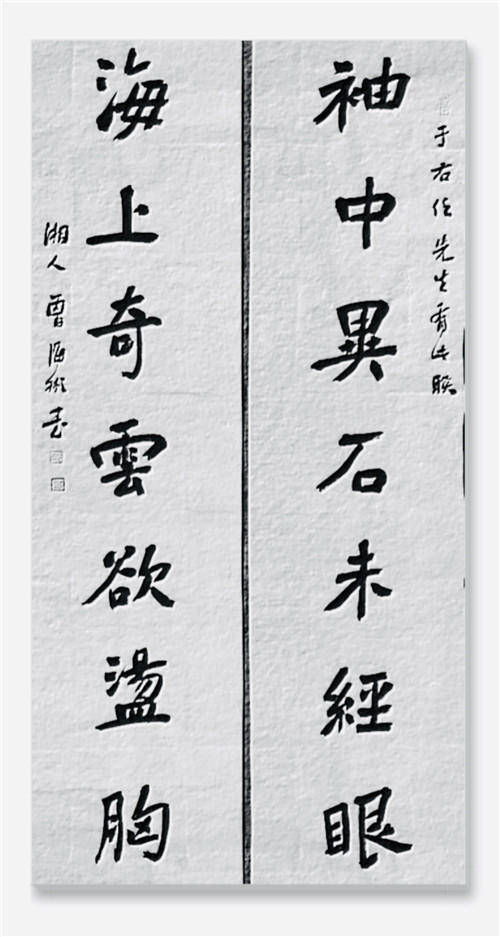 于右任先生有此联
袖中異石未經眼
海上奇雲欲盪胸
湘人曹海
書